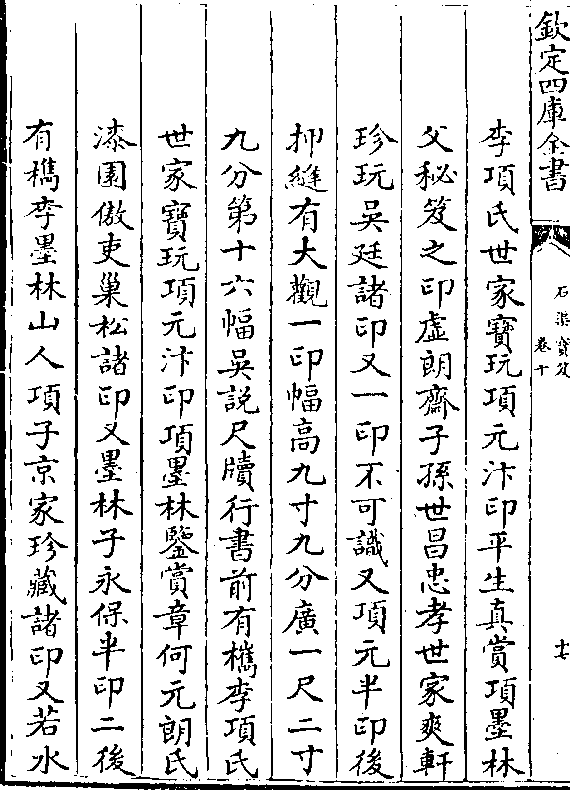 欽定四庫全書
石渠寳笈
卷十
十七
李項氏世家寶玩項元汴印平生真賞項墨林
父秘笈之印虛朗齋子孫世昌忠孝世家爽軒
珍玩吳廷諸印又一印不可識又項元半印後
押縫有大觀一印幅髙九寸九分廣一尺二寸
九分第十六幅吳説尺牘行書前有檇李項氏
世家寶玩項元汴印項墨林鑒賞章何元朗氏
漆園傲吏巢松諸印又墨林子永保半印二後
有檇李墨林山人項子京家珍藏諸印又若水